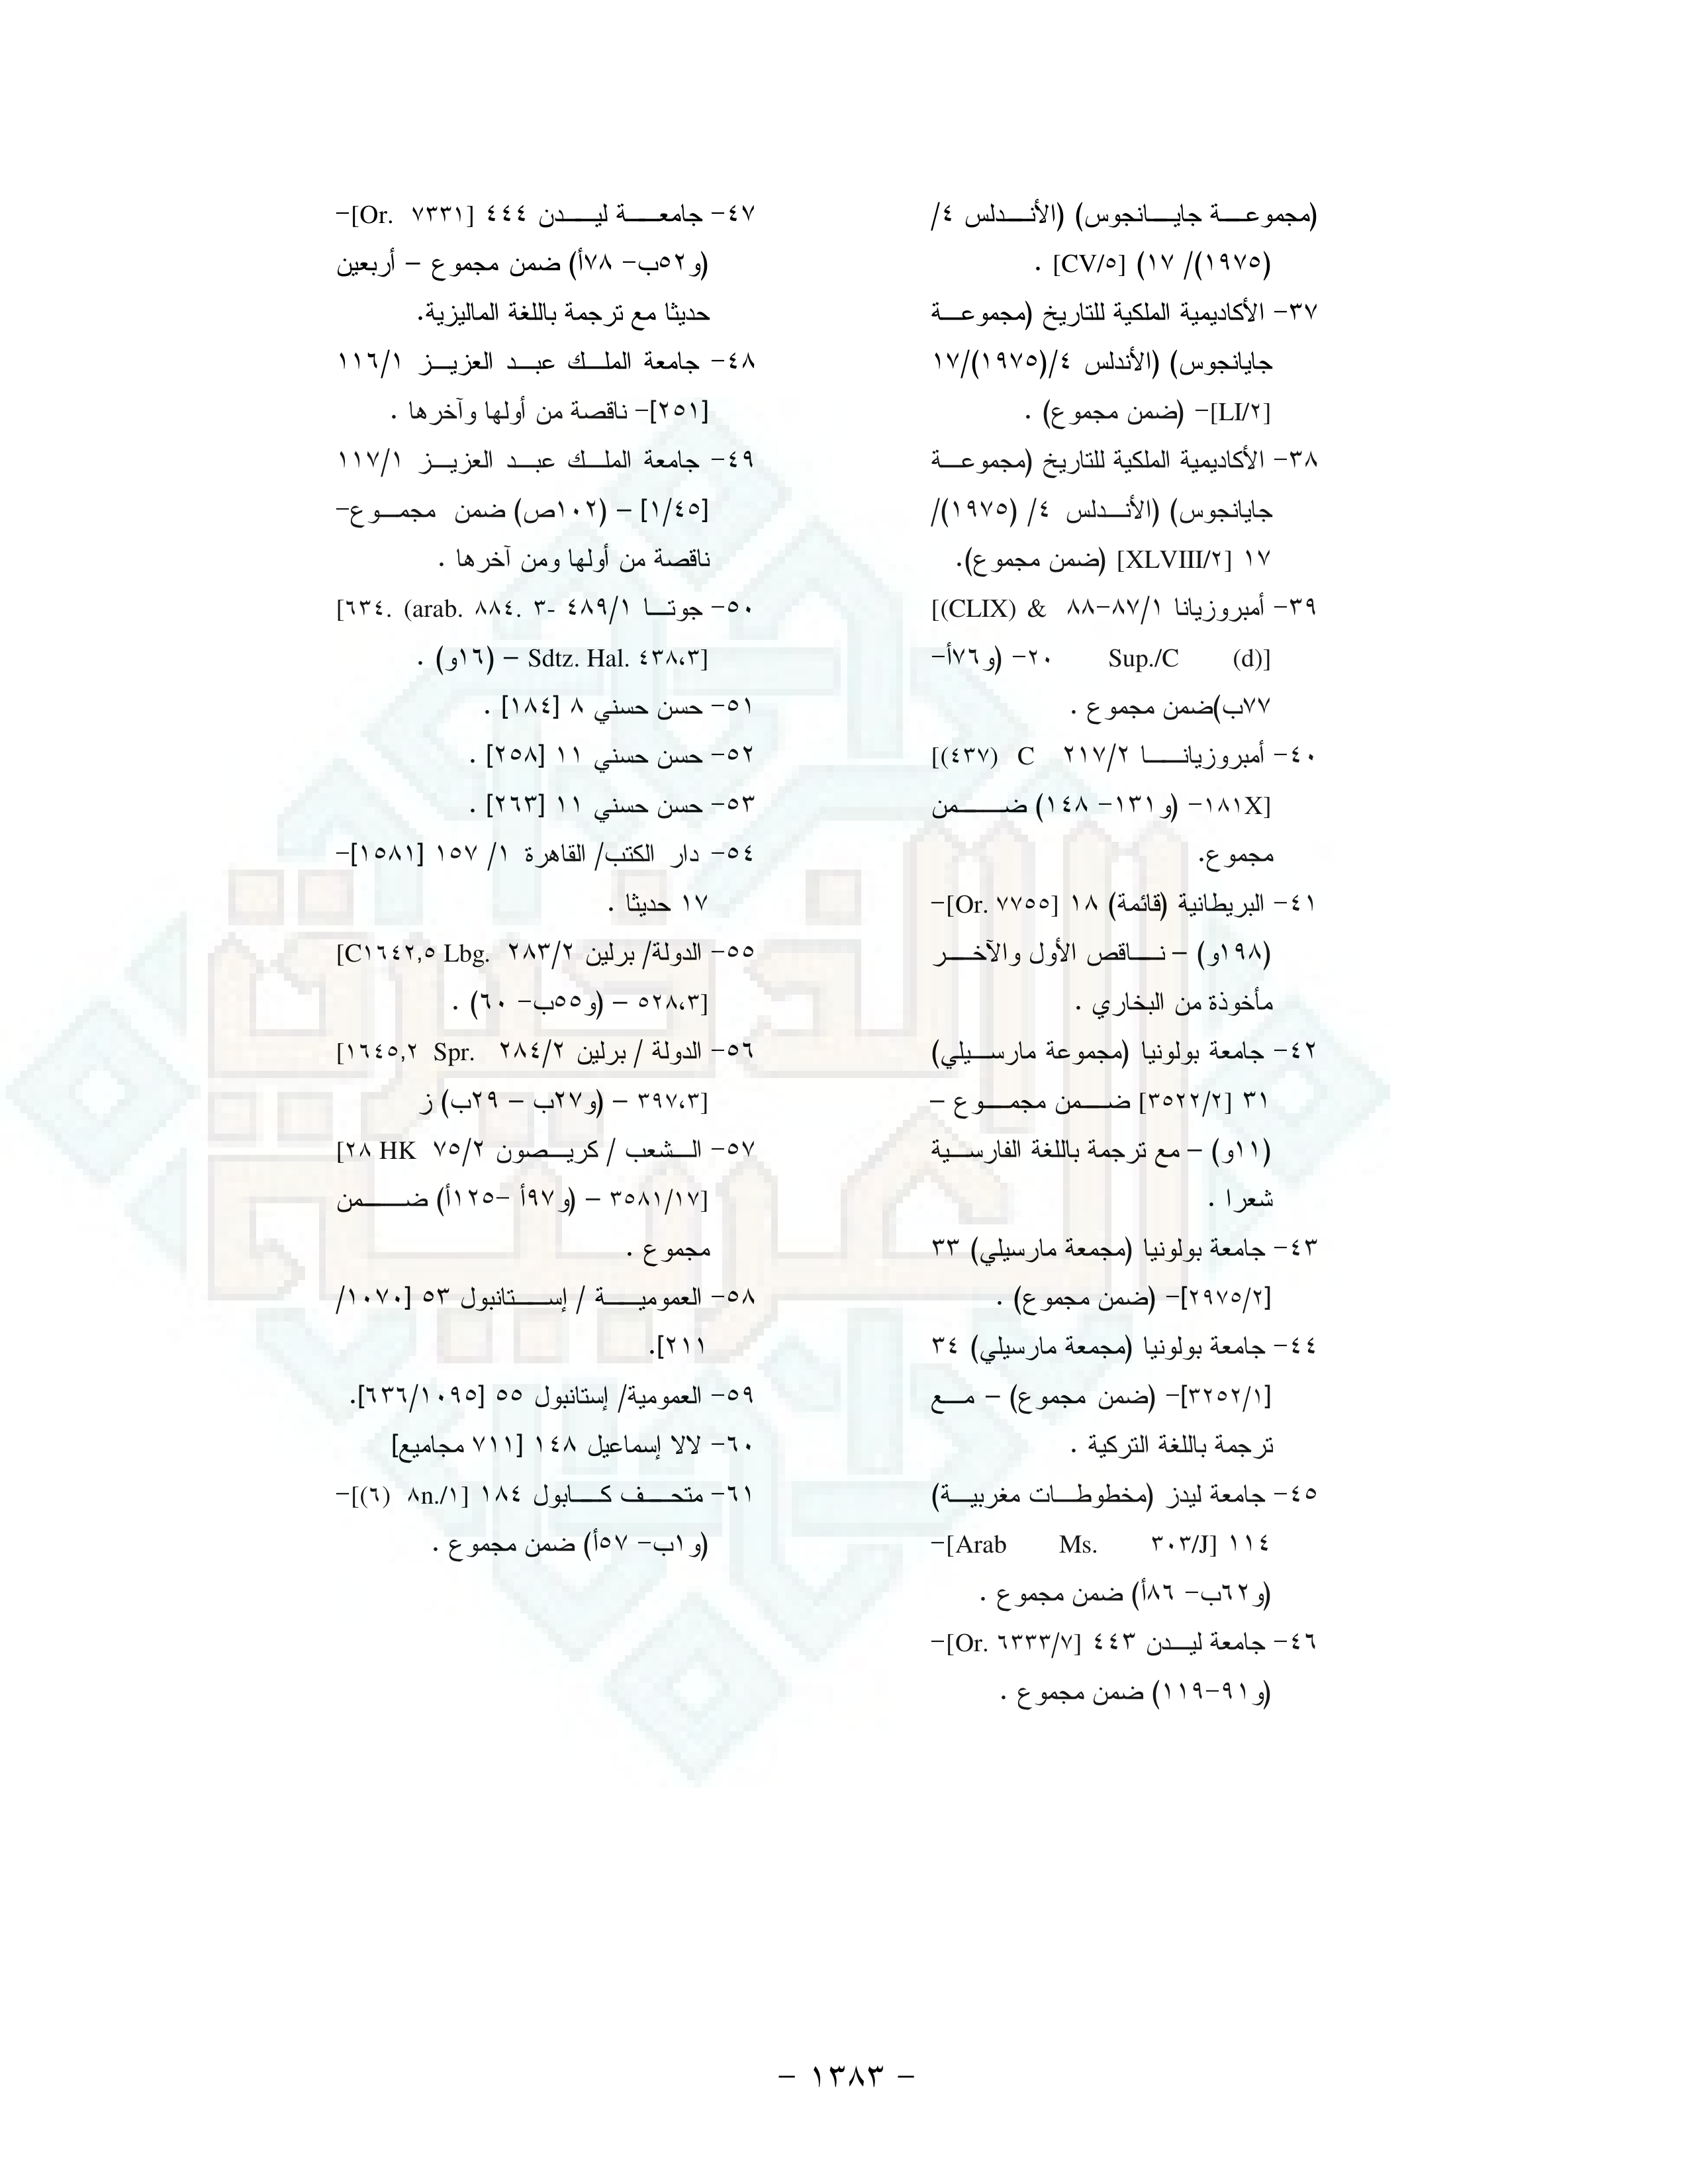 (مجموعة جايانجوس) (الأندلس ٤/
(١٩٧٥)/ ١٧) [CV/٥] .
٣٧- الأكاديمية الملكية للتاريخ (مجموعة
جايانجوس) (الأندلس ٤/(١٩٧٥)/١٧
[LI/٢]- (ضمن مجموع) .
٣٨- الأكاديمية الملكية للتاريخ (مجموعة
جايانجوس) (الأندلس ٤/ (١٩٧٥)/
١٧ [XLVIII/٢] (ضمن مجموع).
٣٩- أمبروزيانا ٨٧/١-٨٨ & (CLIX)]
[(d) Sup./C ٢٠- (و٧٦أ-
٧٧ب)ضمن مجموع .
٤٠- أمبروزيانا ٢١٧/٢ C (٤٣٧)]
[١٨١X- (و١٣١- ١٤٨) ضمن
مجموع.
٤١- البريطانية (قائمة) ١٨ [Or. ٧٧٥٥]-
(١٩٨و) – ناقص الأول والآخر
مأخوذة من البخاري .
٤٢- جامعة بولونيا (مجموعة مارسيلي)
٣١ [٣٥٢٢/٢] ضمن مجموع –
(١١و) – مع ترجمة باللغة الفارسية
شعرا .
٤٣- جامعة بولونيا (مجمعة مارسيلي) ٣٣
[٢٩٧٥/٢]- (ضمن مجموع) .
٤٤- جامعة بولونيا (مجمعة مارسيلي) ٣٤
[٣٢٥٢/١]- (ضمن مجموع) – مع
ترجمة باللغة التركية .
٤٥- جامعة ليدز (مخطوطات مغربية)
١١٤ [Arab Ms. ٣٠٣/J]-
(و٦٢ب- ٨٦أ) ضمن مجموع .
٤٦- جامعة ليدن ٤٤٣ [Or. ٦٣٣٣/٧]-
(و٩١-١١٩) ضمن مجموع .
٤٧- جامعة ليدن ٤٤٤ [Or. ٧٣٣١]-
(و٥٢ب- ٧٨أ) ضمن مجموع – أربعين
حديثا مع ترجمة باللغة الماليزية.
٤٨- جامعة الملك عبد العزيز ١١٦/١
[٢٥١]- ناقصة من أولها وآخرها .
٤٩- جامعة الملك عبد العزيز ١١٧/١
[١/٤٥] – (١٠٢ص) ضمن مجموع-
ناقصة من أولها ومن آخرها .
٥٠- جوتا ٤٨٩/١ -٣ .٨٨٤ .arab) .٦٣٤]
[٤٣٨،٣ .Sdtz. Hal – (١٦و) .
٥١- حسن حسني ٨ [١٨٤] .
٥٢- حسن حسني ١١ [٢٥٨] .
٥٣- حسن حسني ١١ [٢٦٣] .
٥٤- دار الكتب/ القاهرة ١/ ١٥٧ [١٥٨١]-
١٧ حديثا .
٥٥- الدولة/ برلين ٢٨٣/٢ .C١٦٤٢,٥ Lbg]
[٥٢٨،٣ – (و٥٥ب- ٦٠) .
٥٦- الدولة / برلين ٢٨٤/٢ .١٦٤٥,٢ Spr]
[٣٩٧،٣ – (و٢٧ب – ٢٩ب) ز
٥٧- الشعب / كريصون ٧٥/٢ ٢٨ HK]
[٣٥٨١/١٧ – (و٩٧أ -١٢٥أ) ضمن
مجموع .
٥٨- العمومية / إستانبول ٥٣ [١٠٧٠/
٢١١].
٥٩- العمومية/ إستانبول ٥٥ [٦٣٦/١٠٩٥].
٦٠- لالا إسماعيل ١٤٨ [٧١١ مجاميع]
٦١- متحف كابول ١٨٤ [١/.٨n (٦)]-
(و١ب- ٥٧أ) ضمن مجموع .
- ١٣٨٣ -